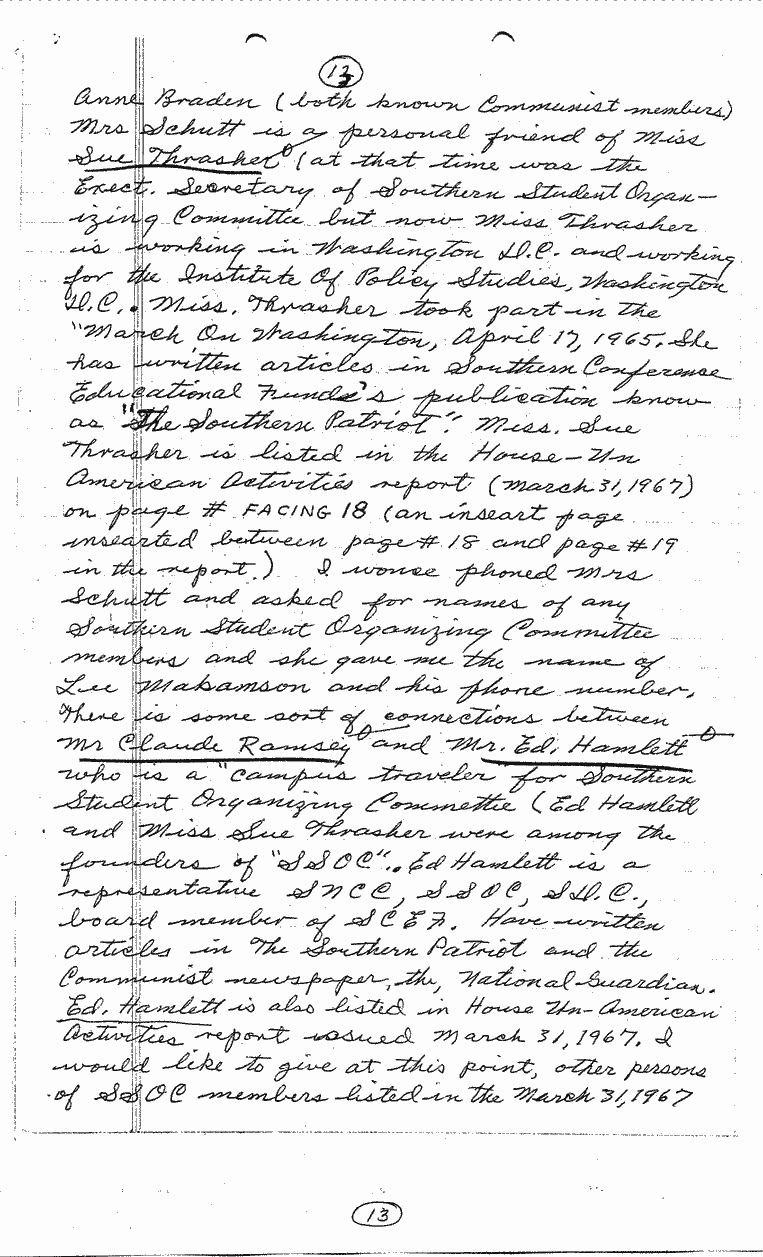 13
Anne Braden (both known Communist members)
Mrs Schutt is a personal friend of Miss
Sue Thrasher (at that time was the
Exect. Secretary of Southern Student Organ-
izing Committee but now Miss Thrasher
is working in Washington D.C. and working
for the Institute Of Policy Studies, Washington
D.C.. Miss. Thrasher took part in the
"March On Washington, April 17, 1965. She
has written articles in Southern Conference
Educational Funds's publication know
as "The Southern Patriot". Miss. Sue
Thrasher is listed in the House-Un
American Activities report (March 31, 1967)
on page # FACING 18 (an inseart page
insearted between page # 18 and page # 19
in the report.) I wonse phoned Mrs
Schutt and asked for names of any
Southern Student Organizing Committee
members and she gave me the name of
Lee Makamson and his phone number.
There is some sort of connections between
Mr Claude Ramsey and Mr. Ed. Hamlett
who is a "campus traveler" for Southern
Student Organizing Commettie (Ed Hamlett
and Miss Sue Thrasher were among the
founders of "SSOC".. Ed Hamlett is a
representative SNCC, SSOC, SD.C.,
board member of SCEF. Have written
articles in The Southern Patriot and the
Communist newspaper, the, National Guardian.
Ed. Hamlett is also listed in House Un-American
Activities report issued March 31, 1967. I
would like to give at this point, other persons
of SSOC members listed in the March 31, 1967
13